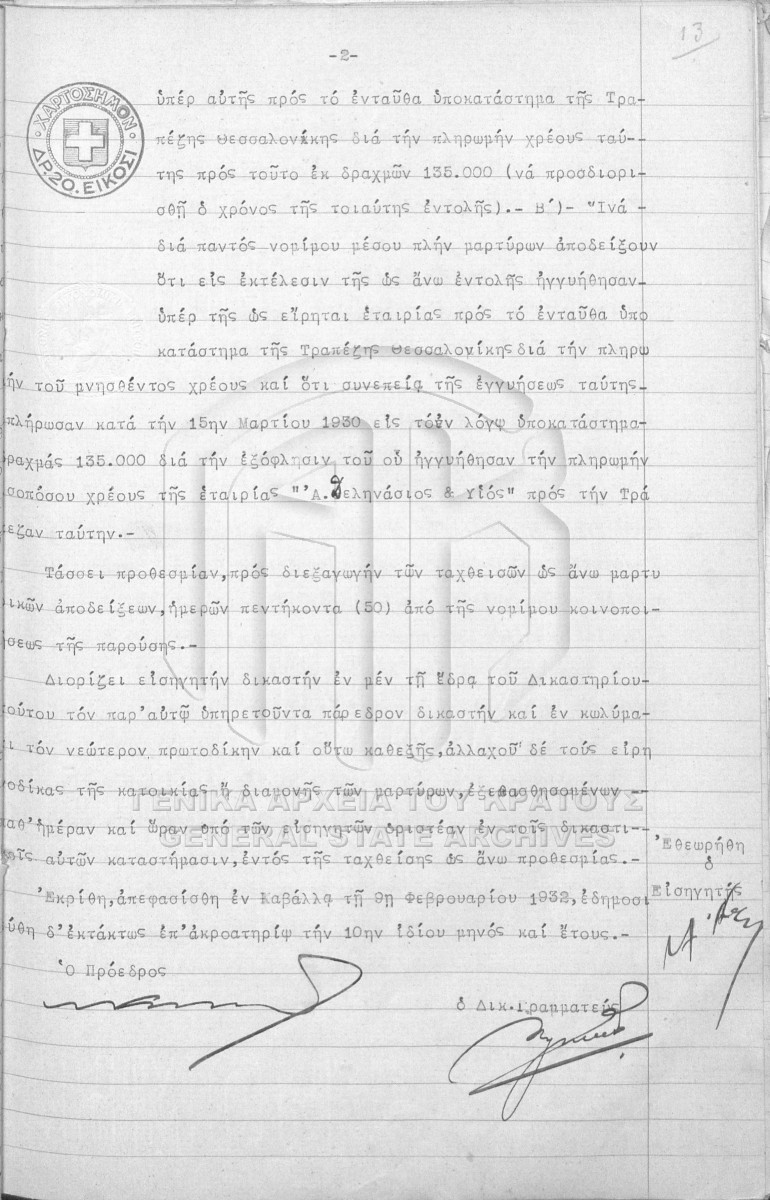 13
-2-
ΧΑΡΤΟΣΗΜΟΝ
ΔΡ. 20. ΕΙΚΟΣΙ
ὑπέρ αὐτῆς πρός τό ἐνταῦθα ὑποκατάστημα τῆς Τρα-
πέζης Θεσσαλονίκης διά τήν πληρωμήν χρέους ταύ-
της πρός τοῦτο ἐκ δραχμῶν 135.000 (νά προσδιορι-
σθῇ ὁ χρόνος τῆς τοιαύτης ἐντολῆς).- Β΄)- "Ινά -
διά παντός νομίμου μέσου πλήν μαρτύρων ἀποδείξουν
ὅτι εἰς ἐκτέλεσιν τῆς ὡς ἄνω ἐντολῆς ἠγγυήθησαν-
ὑπέρ τῆς ὡς εἴρηται ἑταιρίας πρός τό ἐνταῦθα ὑπο
κατάστημα τῆς Τραπέζης Θεσσαλονίκης διά τήν πληρω
ήν τοῦ μνησθέντος χρέους καί ὅτι συνεπείᾳ τῆς ἐγγυήσεως ταύτης-
πλήρωσαν κατά τήν 15ην Μαρτίου 1930 εἰς τόἐν λόγῳ ὑποκατάστημα-
ραχμάς 135.000 διά τήν ἐξόφλησιν τοῦ οὗ ἠγγυήθησαν τήν πληρωμήν
σοπόσου χρέους τῆς ἑταιρίας "Ἀ.Δεληνάσιος & Υἱός" πρός τήν Τρά
εζαν ταύτην.-
Τάσσει προθεσμίαν, πρός διεξαγωγήν τῶν ταχθεισῶν ὡς ἄνω μαρτυ
ικῶν ἀποδείξεων, ἡμερῶν πεντήκοντα (50) ἀπό τῆς νομίμου κοινοποι-
ήσεως τῆς παρούσης.-
Διορίζει εἰσηγητήν δικαστήν ἐν μέν τῇ ἕδρᾳ τοῦ Δικαστηρίου-
ούτου τόν παρ'αὐτῷ ὑπηρετοῦντα πάρεδρον δικαστήν καί ἐν κωλύμα-
ι τόν νεώτερον πρωτοδίκην καί οὕτω καθεξῆς, ἀλλαχοῦ δέ τούς εἰρη
οδίκας τῆς κατοικίας ἤ διαμονῆς τῶν μαρτύρων, ἐξετασθησομένων --
αθ'ἡμέραν καί ὥραν ὑπό τῶν εἰσηγητῶν ὁριστέαν ἐν τοῖς δικαστι--
οῖς αὐτῶν καταστήμασιν, ἐντός τῆς ταχθείσης ὡς ἄνω προθεσμίας.-
Ἐκρίθη, ἀπεφασίσθη ἐν Καβάλλᾳ τῇ 9ῃ Φεβρουαρίου 1932, ἐδημοσι
ύθη δ'ἐκτάκτως ἐπ'ἀκροατηρίῳ τήν 10ην ἰδίου μηνός καί ἔτους.-
Ὁ Πρόεδρος
ὁ Δικ.Γραμματεύς
Ἐθεωρήθη
ὁ
Εἰσηγητής
ΓΕΝΙΚΑ ΑΡΧΕΙΑ ΤΟΥ ΚΡΑΤΟΥΣ
GENERAL STATE ARCHIVES